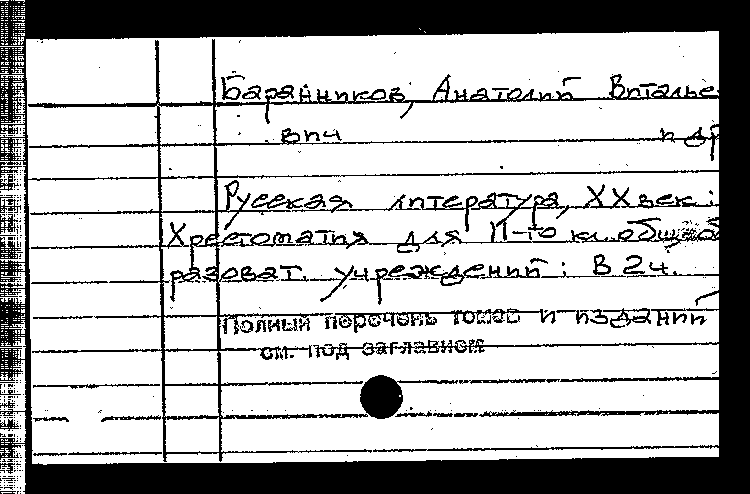 Баранников, Анатолий Виталье
вич и др
Русская литература, XX век:
Хрестоматия для 11-го кл. общеоб
разоват. учреждений: В 2ч.
Полный перечень томов и изданий
см. под заглавием